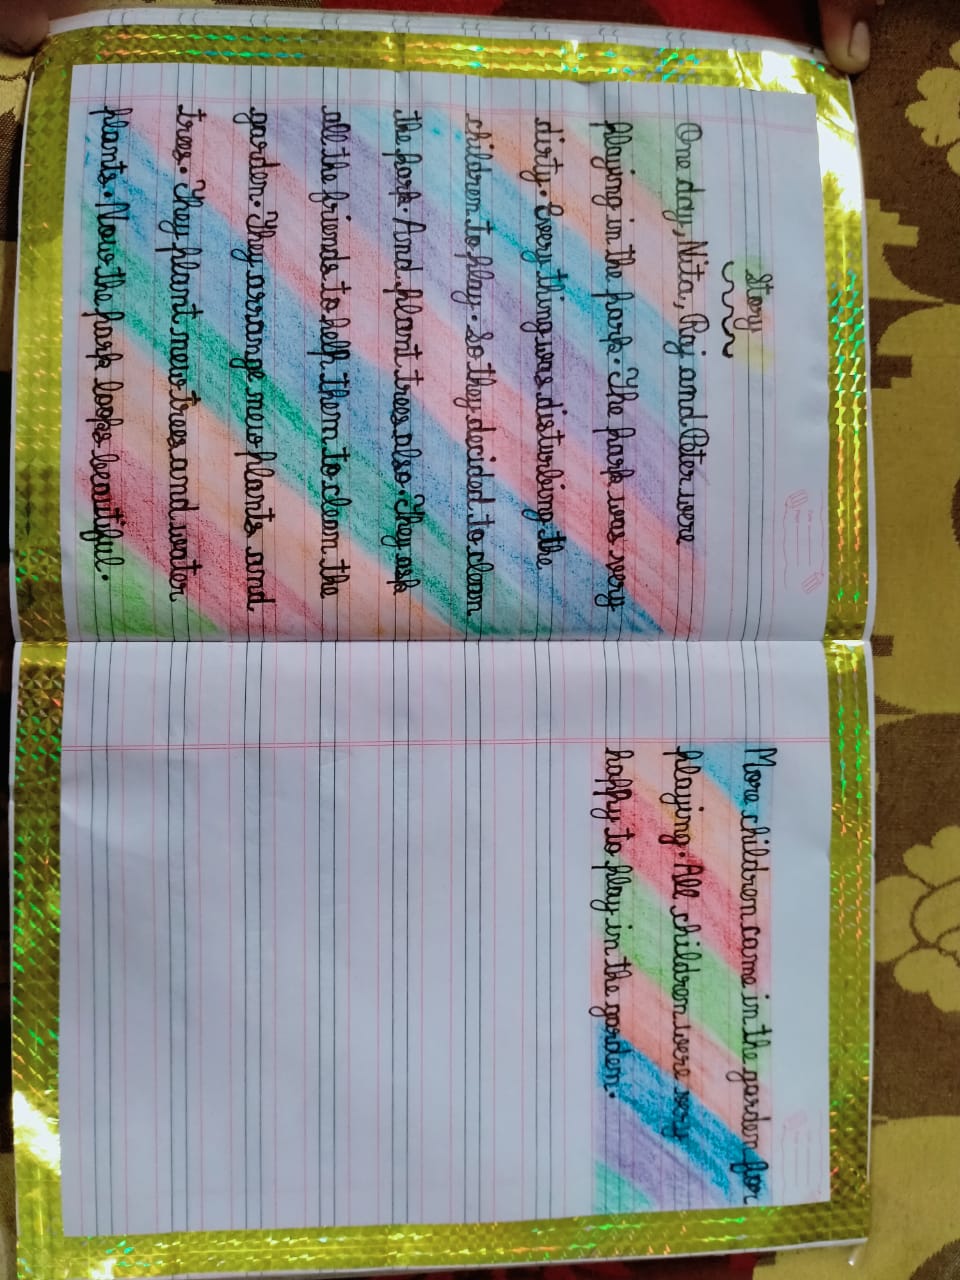 Story
One day, Nita, Raj and Peter were
playing in the park. The park was very
dirty. Every thing was disturbing the
children to play. So they decided to clean
the park. And plant trees also. They ask
all the friends to help them to clean the
garden. They arrange new plants and
trees. They plant new trees and water
plants. Now the park looks beautiful.
More children came in the garden for
playing. All children were very
happy to play in the garden.